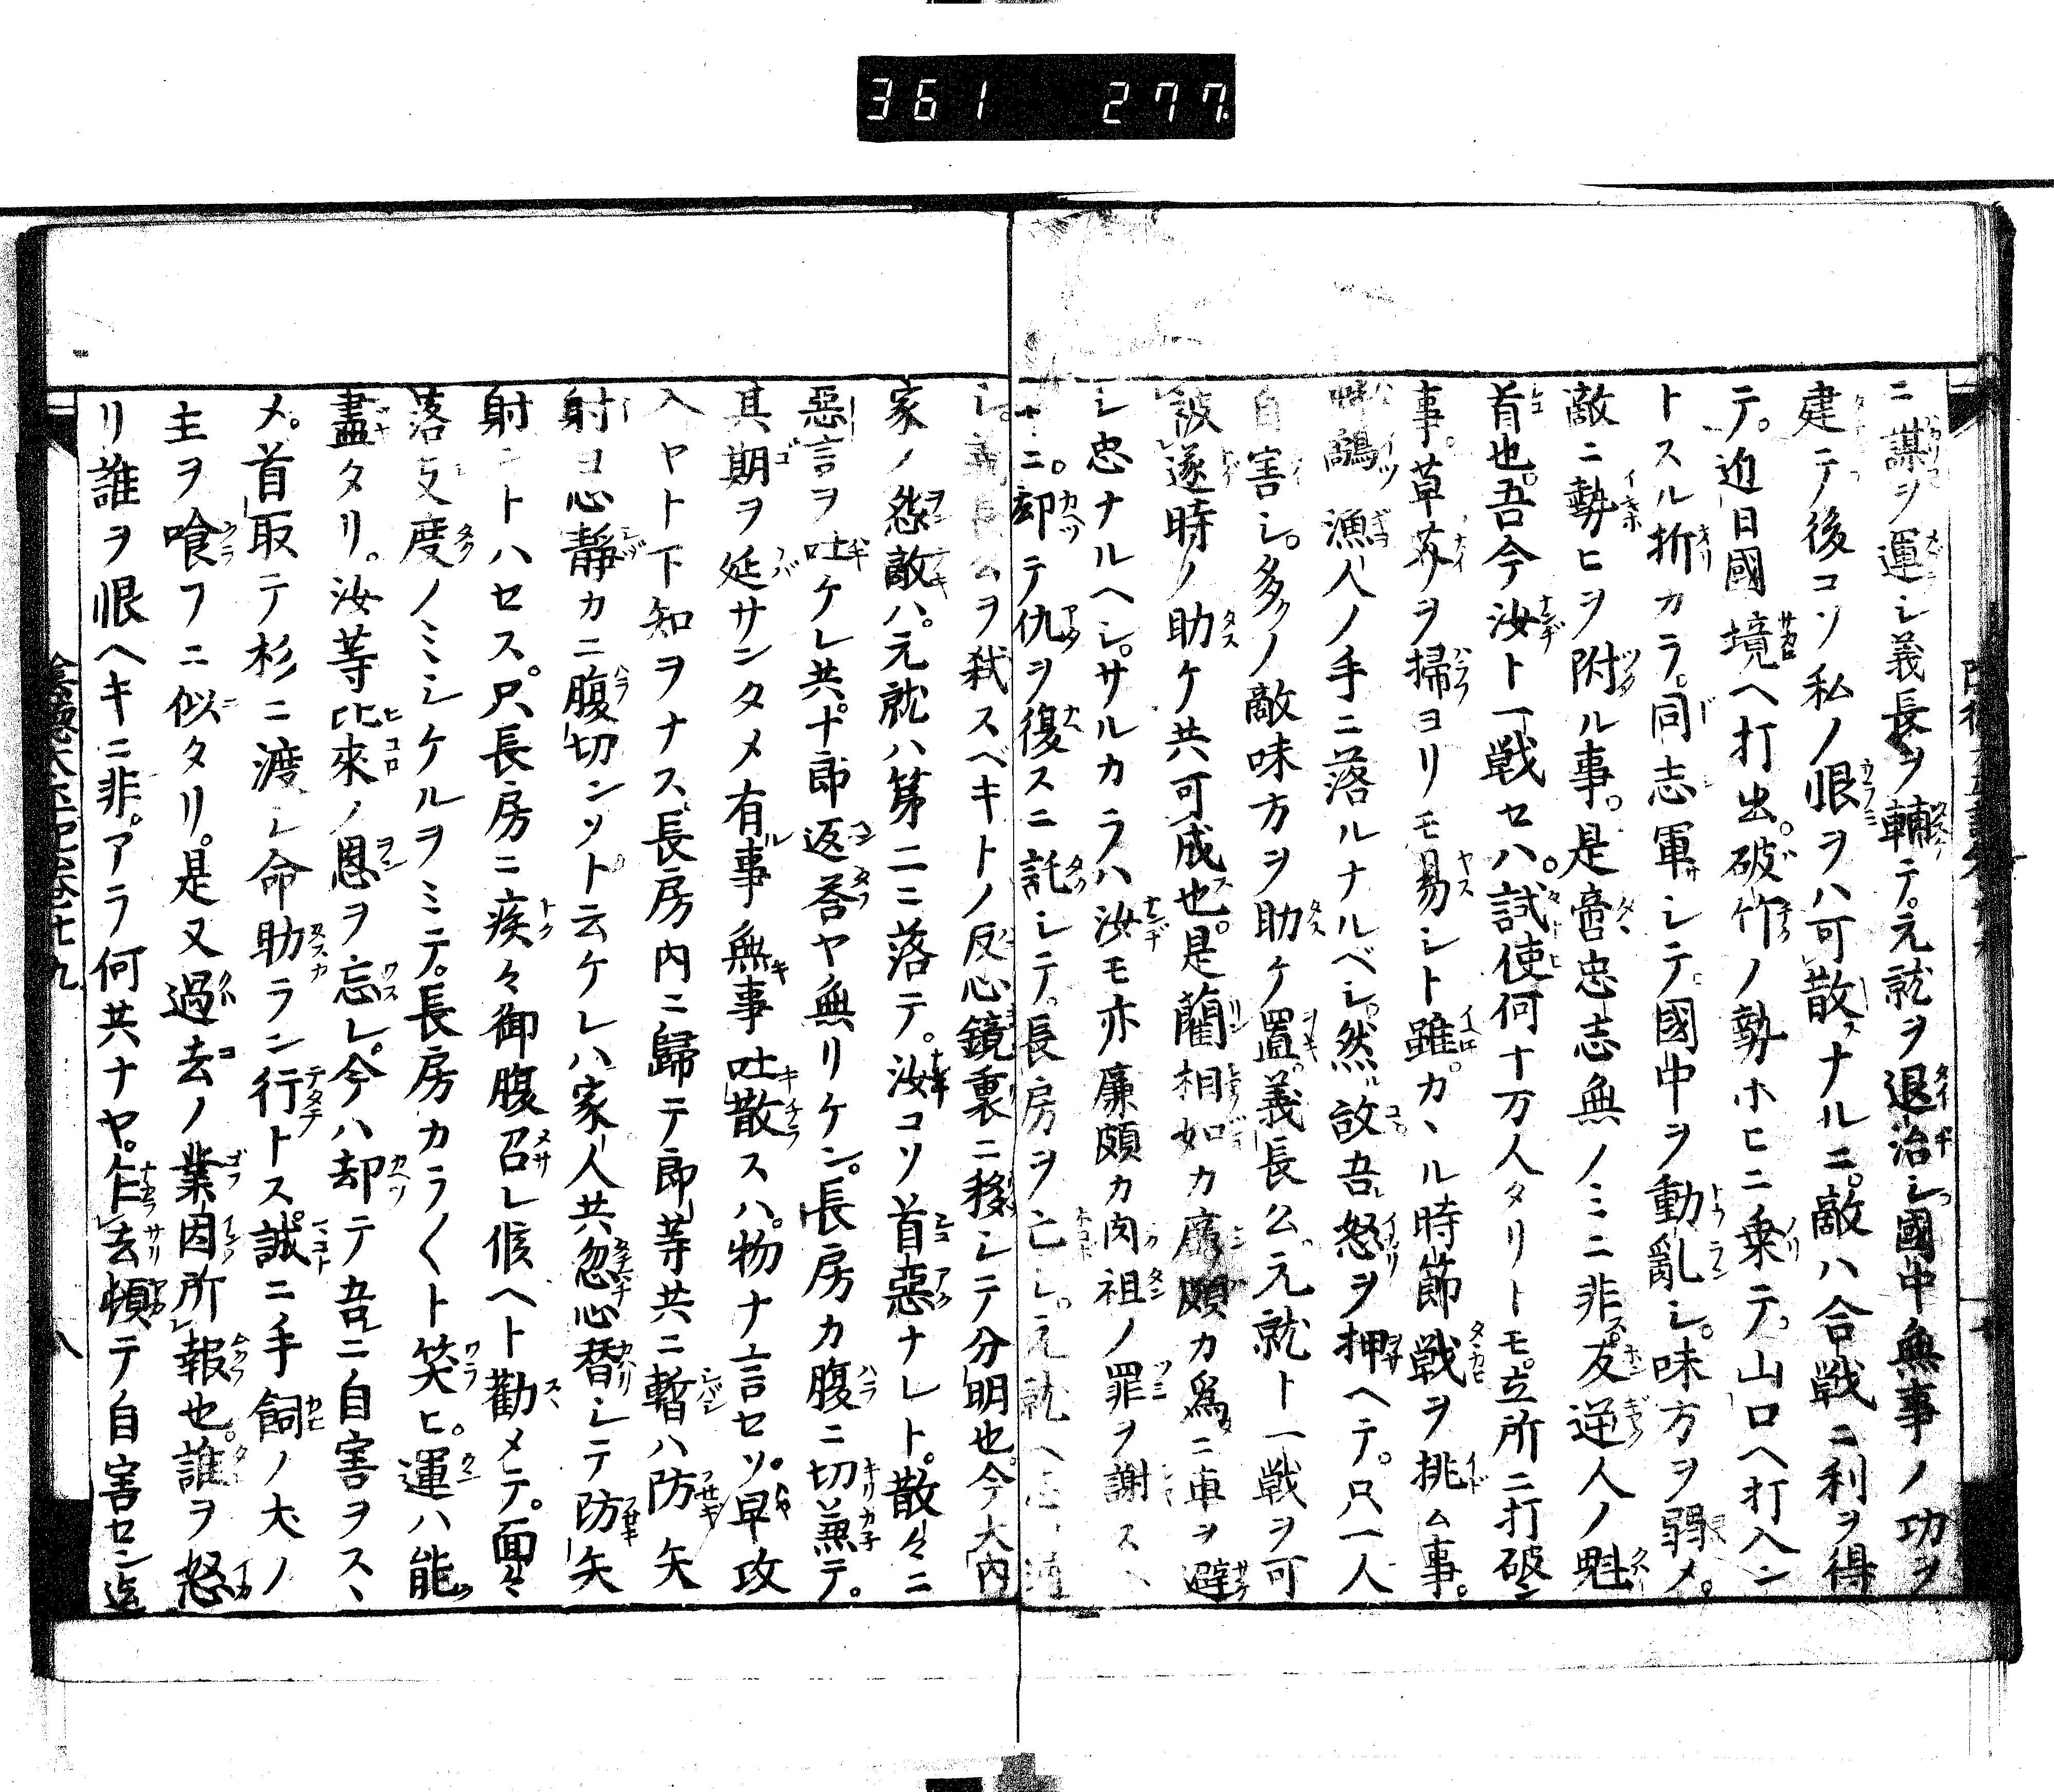 361 277.
ニ謀ヲ運シ義長ヲ輔テ。元就ヲ退治シ國中無事ノ功ヲ
建テ後コソ私ノ恨ヲハ可散ナルニ。敵ハ合戦ニ利ヲ得
テ。迫日國境ヘ打出。破竹ノ勢ホヒニ乗テ。山口ヘ打入ン
トスル折カラ。同志軍シテ國中ヲ動亂シ。味方ヲ弱メ。
敵ニ勢ヒヲ附ル事。是啻忠志無ノミニ非。反逆人ノ魁
首也。吾今汝ト一戦セハ。試使何十万人タリトモ。立所ニ打破ン
事。草芥ヲ掃ヨリモ易シト雖。カヽル時節戦ヲ挑ム事。
鷸漁人ノ手ニ落ルナルベシ。然故吾怒ヲ押ヘテ。只一人
自害シ。多クノ敵味方ヲ助ケ置。義長公。元就ト一戦ヲ可
被遂時ノ助ケ共可成也。是藺相如カ廉頗カ爲ニ車ヲ避
シ忠ナルヘシ。サルカラハ汝モ亦廉頗カ肉袒ノ罪ヲ謝ス
ニ。却テ仇ヲ復スニ託シテ。長房ヲ亡シ。元就ヘ
シ。義長公ヲ弑スベキトノ反心鏡裏ニ移シテ分明也。今大内
家ノ怨敵ハ。元就ハ第二ニ落テ。汝コソ首惡ナレト。散々ニ
惡言ヲ吐ケレ共。十郎返荅ヤ無リケン。長房カ腹ニ切兼テ。
其期ヲ延サンタメ有事無事吐散スハ。物ナ言セソ。早攻
入ヤト下知ヲナス。長房内ニ歸テ郎等共ニ暫ハ防矢
射ヨ心靜カニ腹切ンソト云ケレハ家人共忽心替シテ防矢
射ントハセス。只長房ニ疾々御腹召レ候ヘト勸メテ。面々
落支度ノミシケルヲミテ。長房カラ〱ト笑ヒ。運ハ能
盡タリ。汝等比來ノ恩ヲ忘レ。今ハ却テ吾ニ自害ヲスヽ
メ。首取テ杉ニ渡シ命助ラン行トス。誠ニ手飼ノ犬ノ
主ヲ喰フニ似タリ。是又過去ノ業因所報也。誰ヲ怒
リ誰ヲ恨ヘキニ非。アラ何共ナヤ。乍去頓テ自害セン迄
陰德太平記卷廿九
八